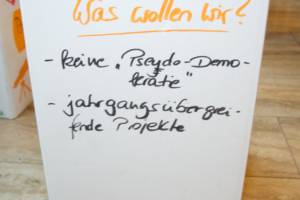 Was wollen wir?
- keine "Pseydo-Demo-
kratie"
- jahrgangsübergrei-
fende Projekte